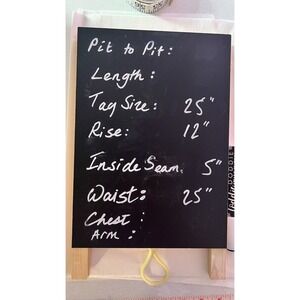 Pit to Pit:
Length:
Tag Size: 25"
Rise: 12"
Inside Seam. 5"
Waist: 25"
Chest:
ARM:
DOODLE